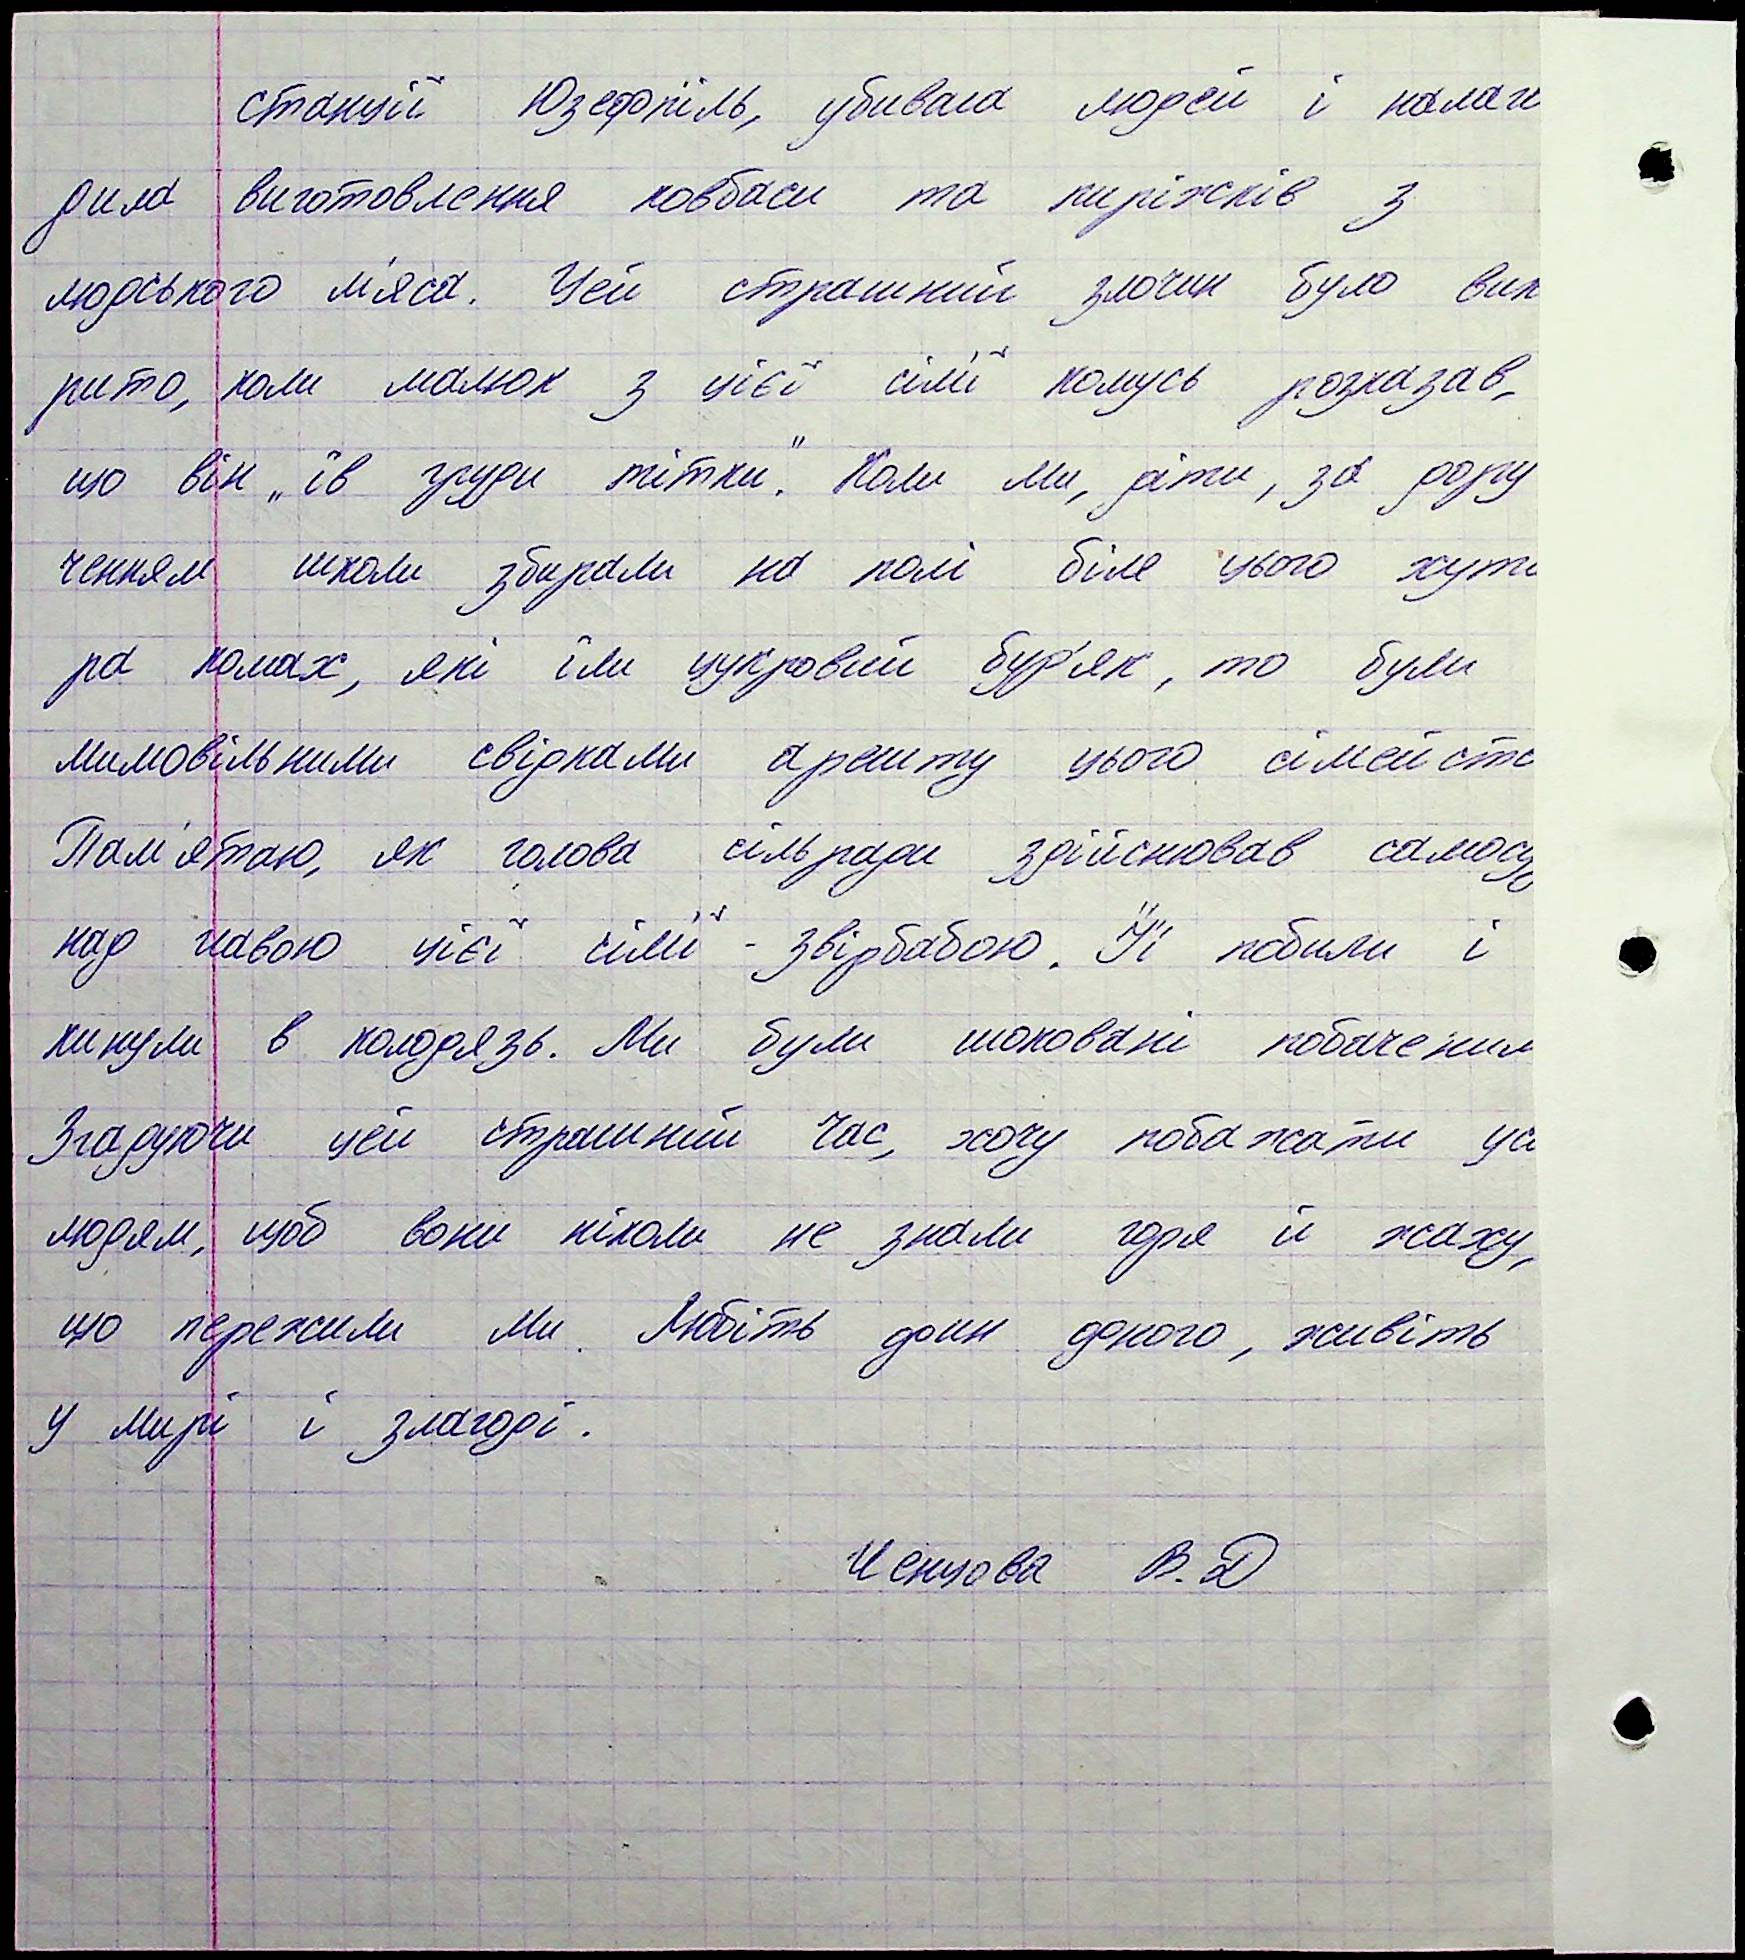 станції Юзефпіль, убивала людей і налаги
дила виготовлення ковбаси та пиріжків з
людського м'яса. Цей страшний злочин було вик
рито, коли малюк з цієї сім'ї комусь розказав,
що він „їв груди тітки". Коли ми, діти, за дору
ченням школи збирали на полі біля цього хуто
ра комах, які їли цукровий бур'як, то були
мимовільними свідками арешту цього сімейств
Пам'ятаю, як голова сільради здійснював самосу
над главою цієї сім'ї - звірбабою. Її побили і
кинули в колодязь. Ми були шоковані побаченим
Згадуючи цей страшний час, хочу побажати усі
людям, щоб вони ніколи не знали горя й жаху,
що пережили ми. Любіть один одного, живіть
у мирі і злагоді.
Ченцова В.Д